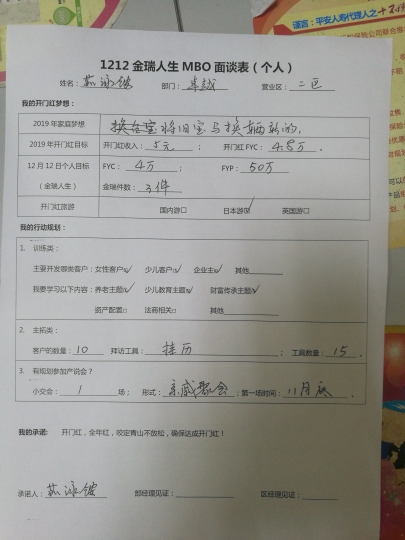 谨言：平安人寿代理人之
1212 金瑞人生 MBO 面谈表（个人）
姓名： 部门：卓越 营业区：二区
我的开门红梦想：
2019 年家庭梦想 将旧宝马换辆新的.
2019 年开门红目标 开门红收入：5元； 开门红 FYC：4.8万.
12 月 12 日个人目标 FYC：4万； FYP：50万
（金瑞人生） 金瑞件数：3件
开门红旅游 国内游□ 日本游☑ 英国游□
我的行动规划：
1. 训练类：
主要开发哪类客户：女性客户☑ 少儿客户☑ 企业主☑ 其他
我要学习以下内容：养老主题☑ 少儿教育主题☑ 财富传承主题☑
资产配置□ 法商相关□ 其他
2. 主拓类：
客户的数量：10 拜访工具：挂历； 工具数量：15.
3. 有规划参加产说会？
小交会：1 场； 形式：亲戚聚会；第一场时间：11月底.
我的承诺： 开门红，全年红，咬定青山不放松，确保达成开门红！
承诺人： 部经理见证： 区经理见证：